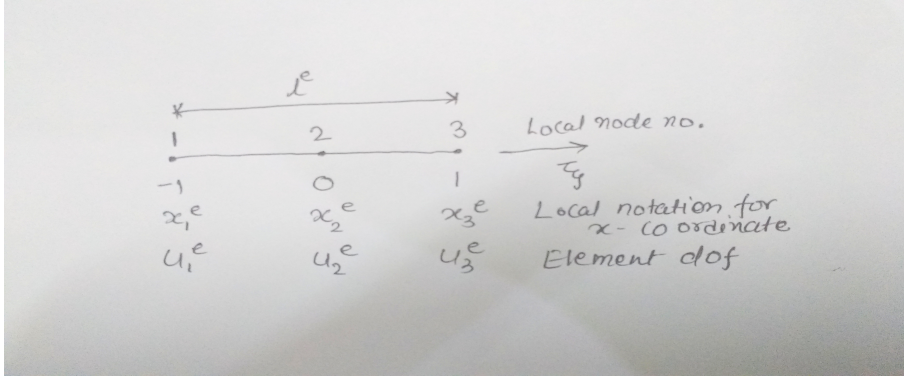 lᵉ
1 2 3 Local node no.
-1 0 1 ξ
x₁ᵉ x₂ᵉ x₃ᵉ Local notation for
x-coordinate
u₁ᵉ u₂ᵉ u₃ᵉ Element dof